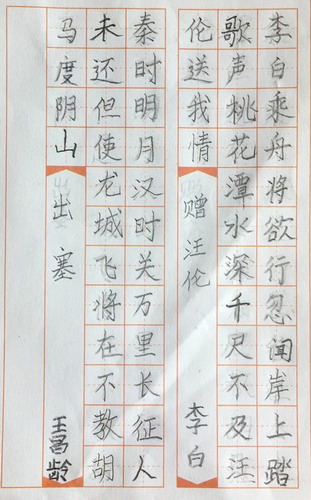 李白乘舟将欲行忽闻岸上踏
歌声桃花潭水深千尺不及汪
伦送我情
赠汪伦
李白
秦时明月汉时关万里长征人
未还但使龙城飞将在不教胡
马度阴山
出塞
王昌龄